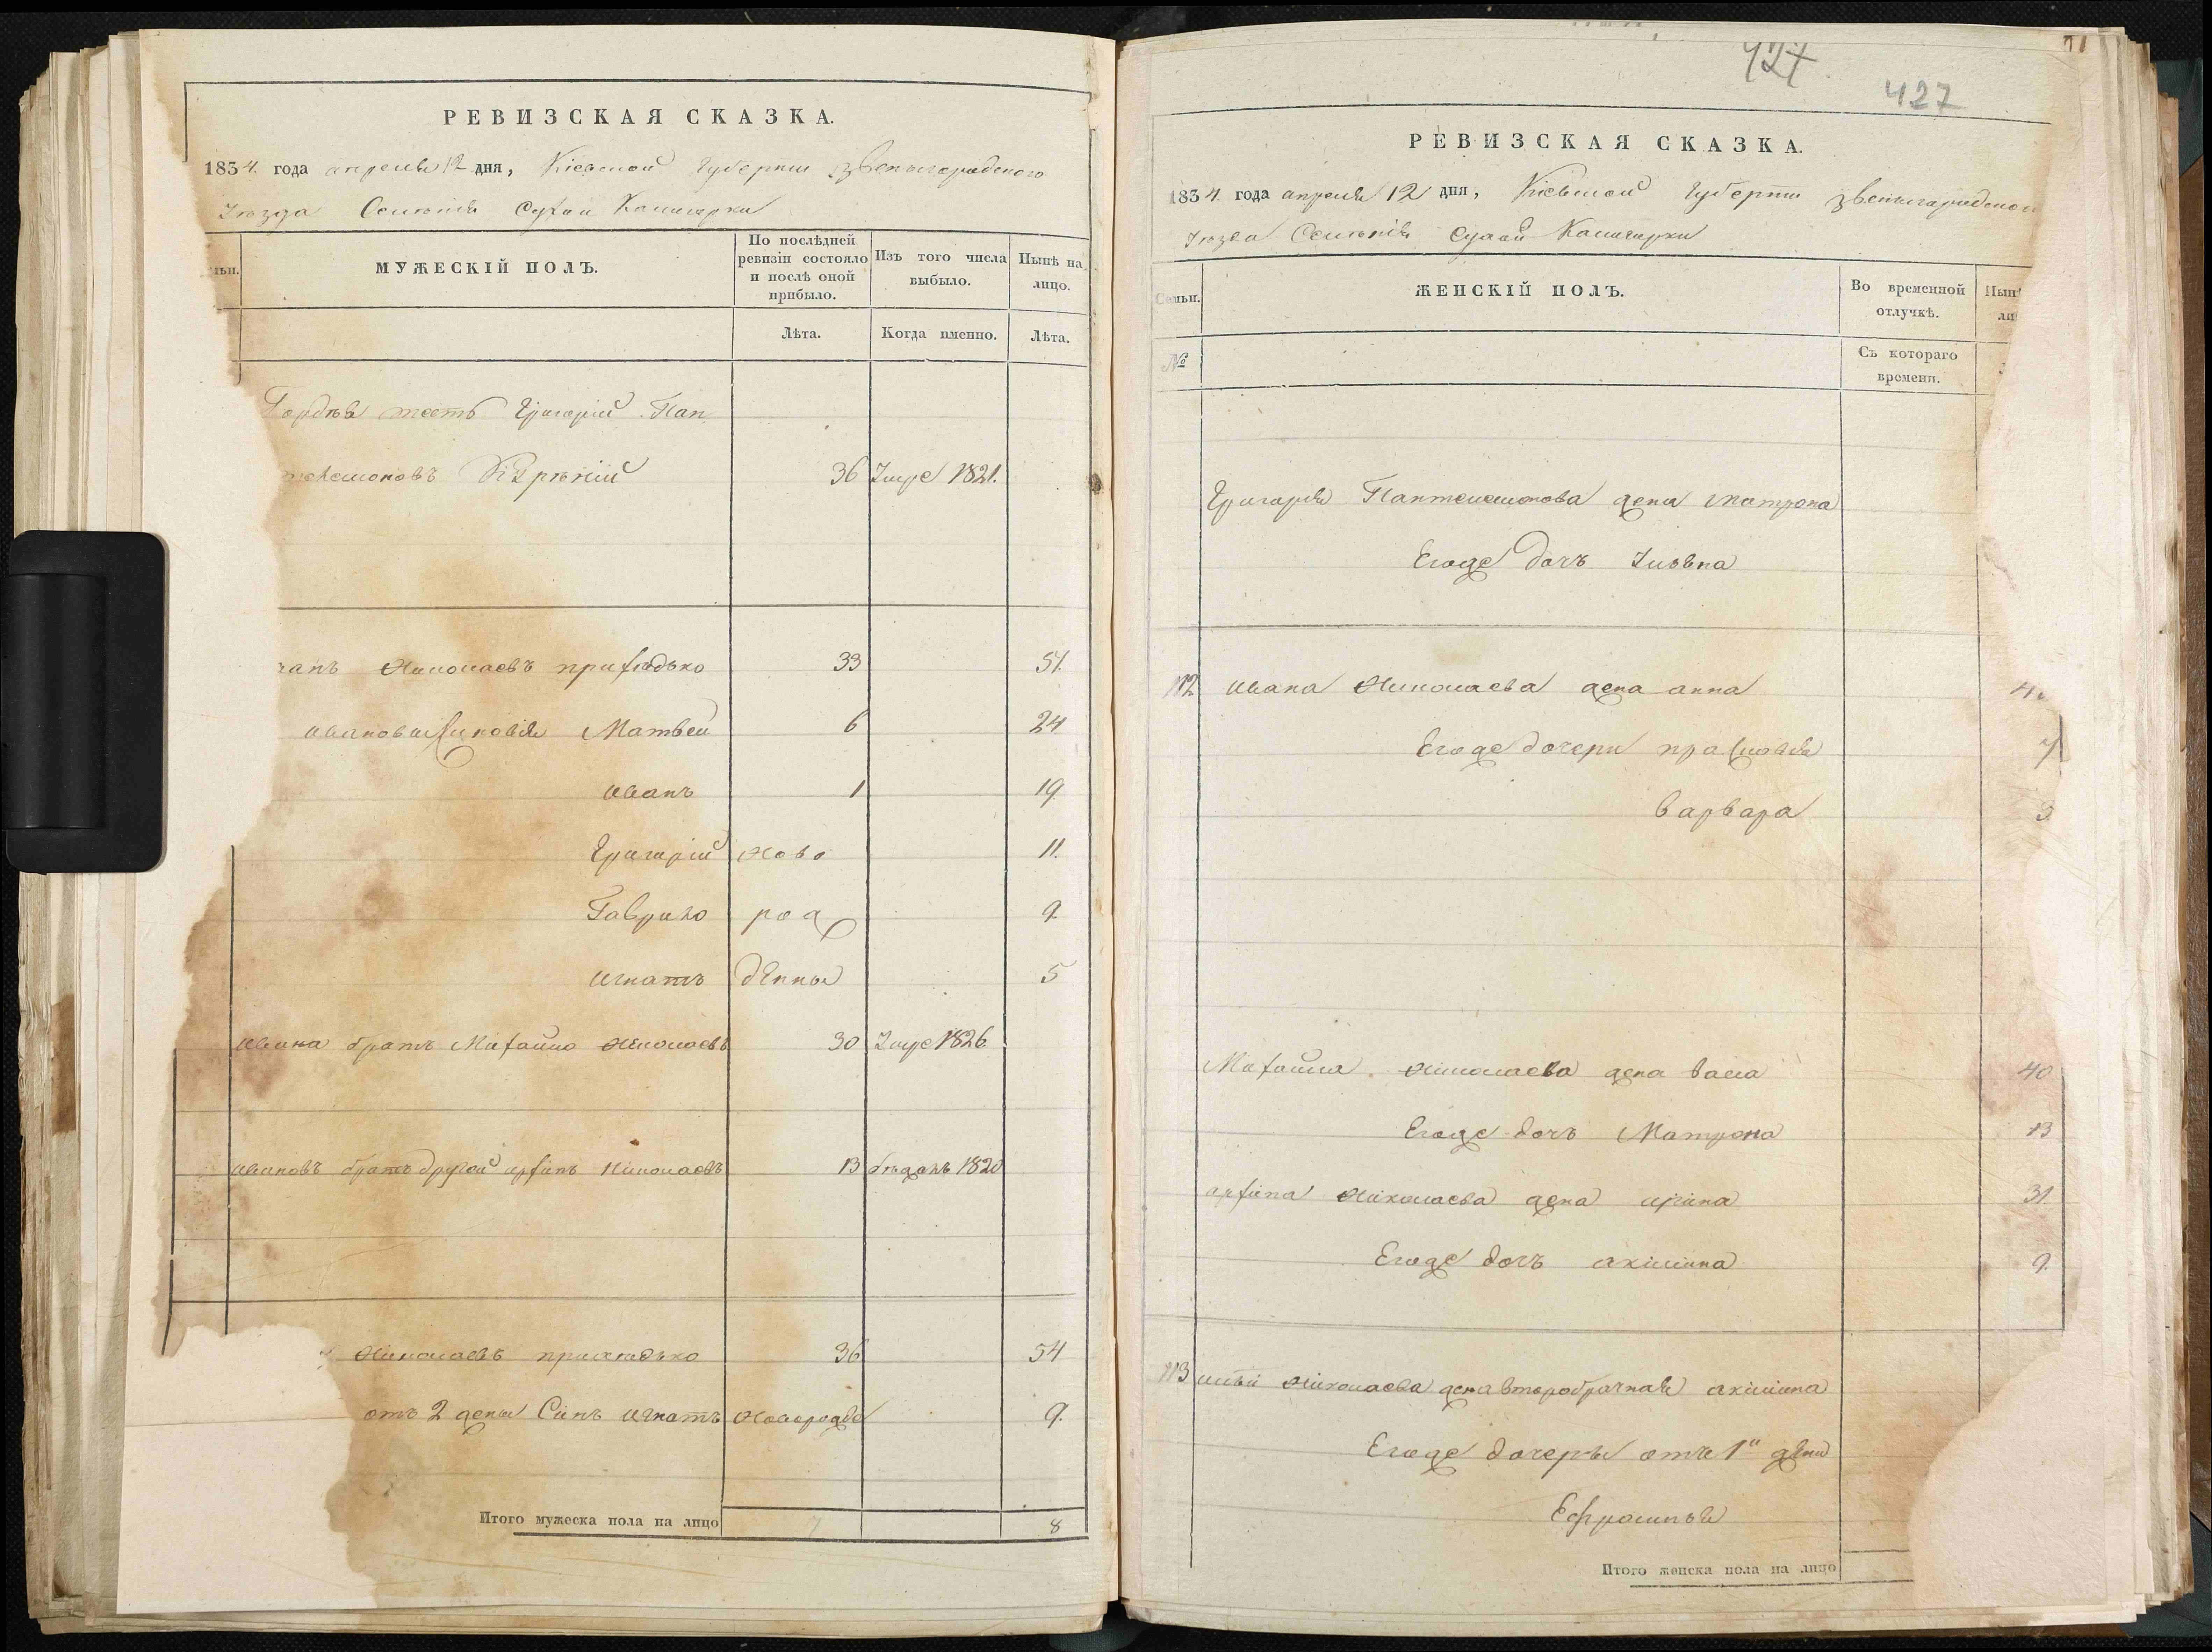 РЕВИЗСКАЯ СКАЗКА.
1834. года апреля 12 дня, Кіевской Губерніи Звенигородского
Уюзда Селенія Сухой Калигорки
МУЖЕСКІЙ ПОЛЪ.
По послѣдней ревизіи состояло и послѣ оной прибыло.
Изъ того числа выбыло.
Нынѣ на лицо.
Лѣта.
Когда именно.
Лѣта.
Гордѣя тесть Григорій Пан
36 Умре 1821.
Николаевъ приходько 33 51.
Ивановы Синовія Матвей 6 24
Иванъ 1 19
Григорій Ново 11.
Гаврило рож 9.
Игнатъ денны 5
Ивана братъ Михайло Николаевъ 30 Умре 1826
Ивановъ братъ другой архипъ Николаевъ 13 бѣжалъ 1820
Николаевъ приходько 36 54
отъ 2 жены Синъ Игнатъ Новорожде 9.
Итого мужеска пола на лицо 7 8
427
427
РЕВИЗСКАЯ СКАЗКА.
1834. года апреля 12 дня, Кіевской Губерніи Звенигородского
Уюзда Селенія Сухой Калигорки
Семьи.
ЖЕНСКІЙ ПОЛЪ.
Во временной отлучкѣ.
№
Съ котораго времени.
Григорія Пантелемонова жена Матрона
Егоже дочъ
112 Ивана Николаева жена анна
Егоже дочери прасковія 7
варвара 3
Михайла Николаева жена васса 40
Егоже дочъ Матрона 13
архипа Николаева жена ирина 31.
Егоже дочъ акилина 9.
113 Николаева жена второбрачная акилина
Егоже дочеры отъ 1й жены
Ефросинья
Итого женска пола на лицо